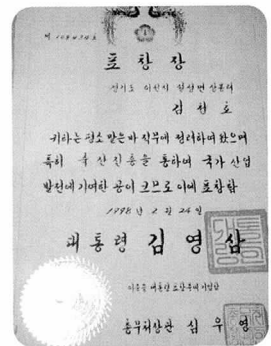 표 창 장
경기도 이천시
김 천 호
귀하는 평소 맡은바 직무에 정려하여 왔으며
특히 축산진흥을 통하여 국가 산업
발전에 기여한 공이 크므로 이에 표창함
1998 년 2 월 24 일
대통령 김 영 삼
이증을 대통령 표창부에 기입함
총무처장관 심 우 영